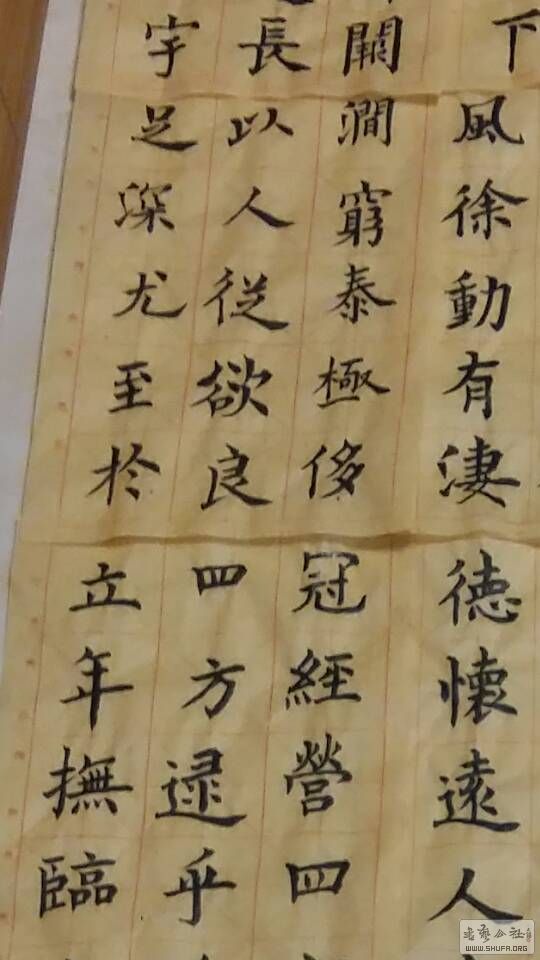 下風徐動有淒德懷遠人
闕澗窮泰極侈冠經營四
長以人從欲良四方逮乎
宇足深尤至於立年撫臨
书艺公社
WWW.SHUFA.ORG